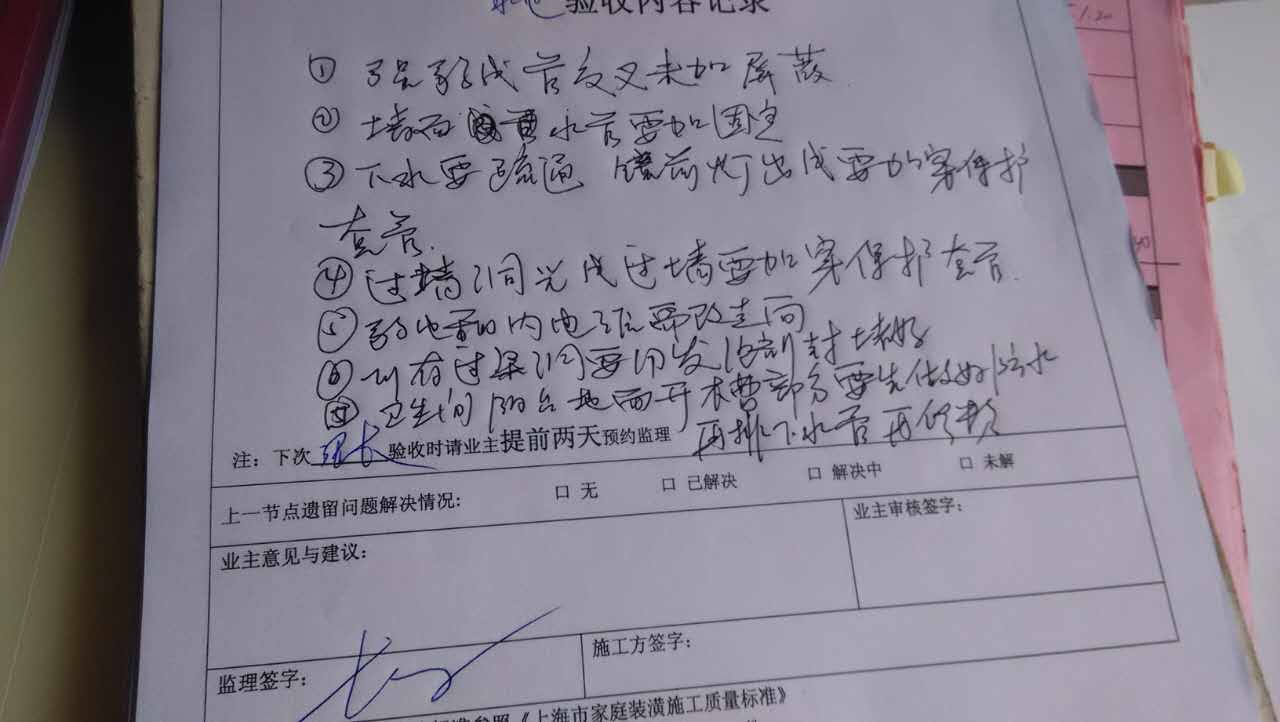 水电验收内容记录
① 强弱线管交叉未加屏蔽
② 墙面水管要加固定
③ 下水要疏通 镜前灯出线要加穿保护
套管.
④ 过墙洞光线过墙要加穿保护套管.
⑤ 弱电箱内电源要改走向
⑥ 所有过梁洞要用发泡剂封堵好
卫生间阳台地面开槽部分要先做好防水
再排下水管再修粉
注：下次验收时请业主提前两天预约监理
上一节点遗留问题解决情况: □ 无 □ 已解决 □ 解决中 □ 未解
业主意见与建议: 业主审核签字:
监理签字: 施工方签字:
标准参照《上海市家庭装潢施工质量标准》
1.20